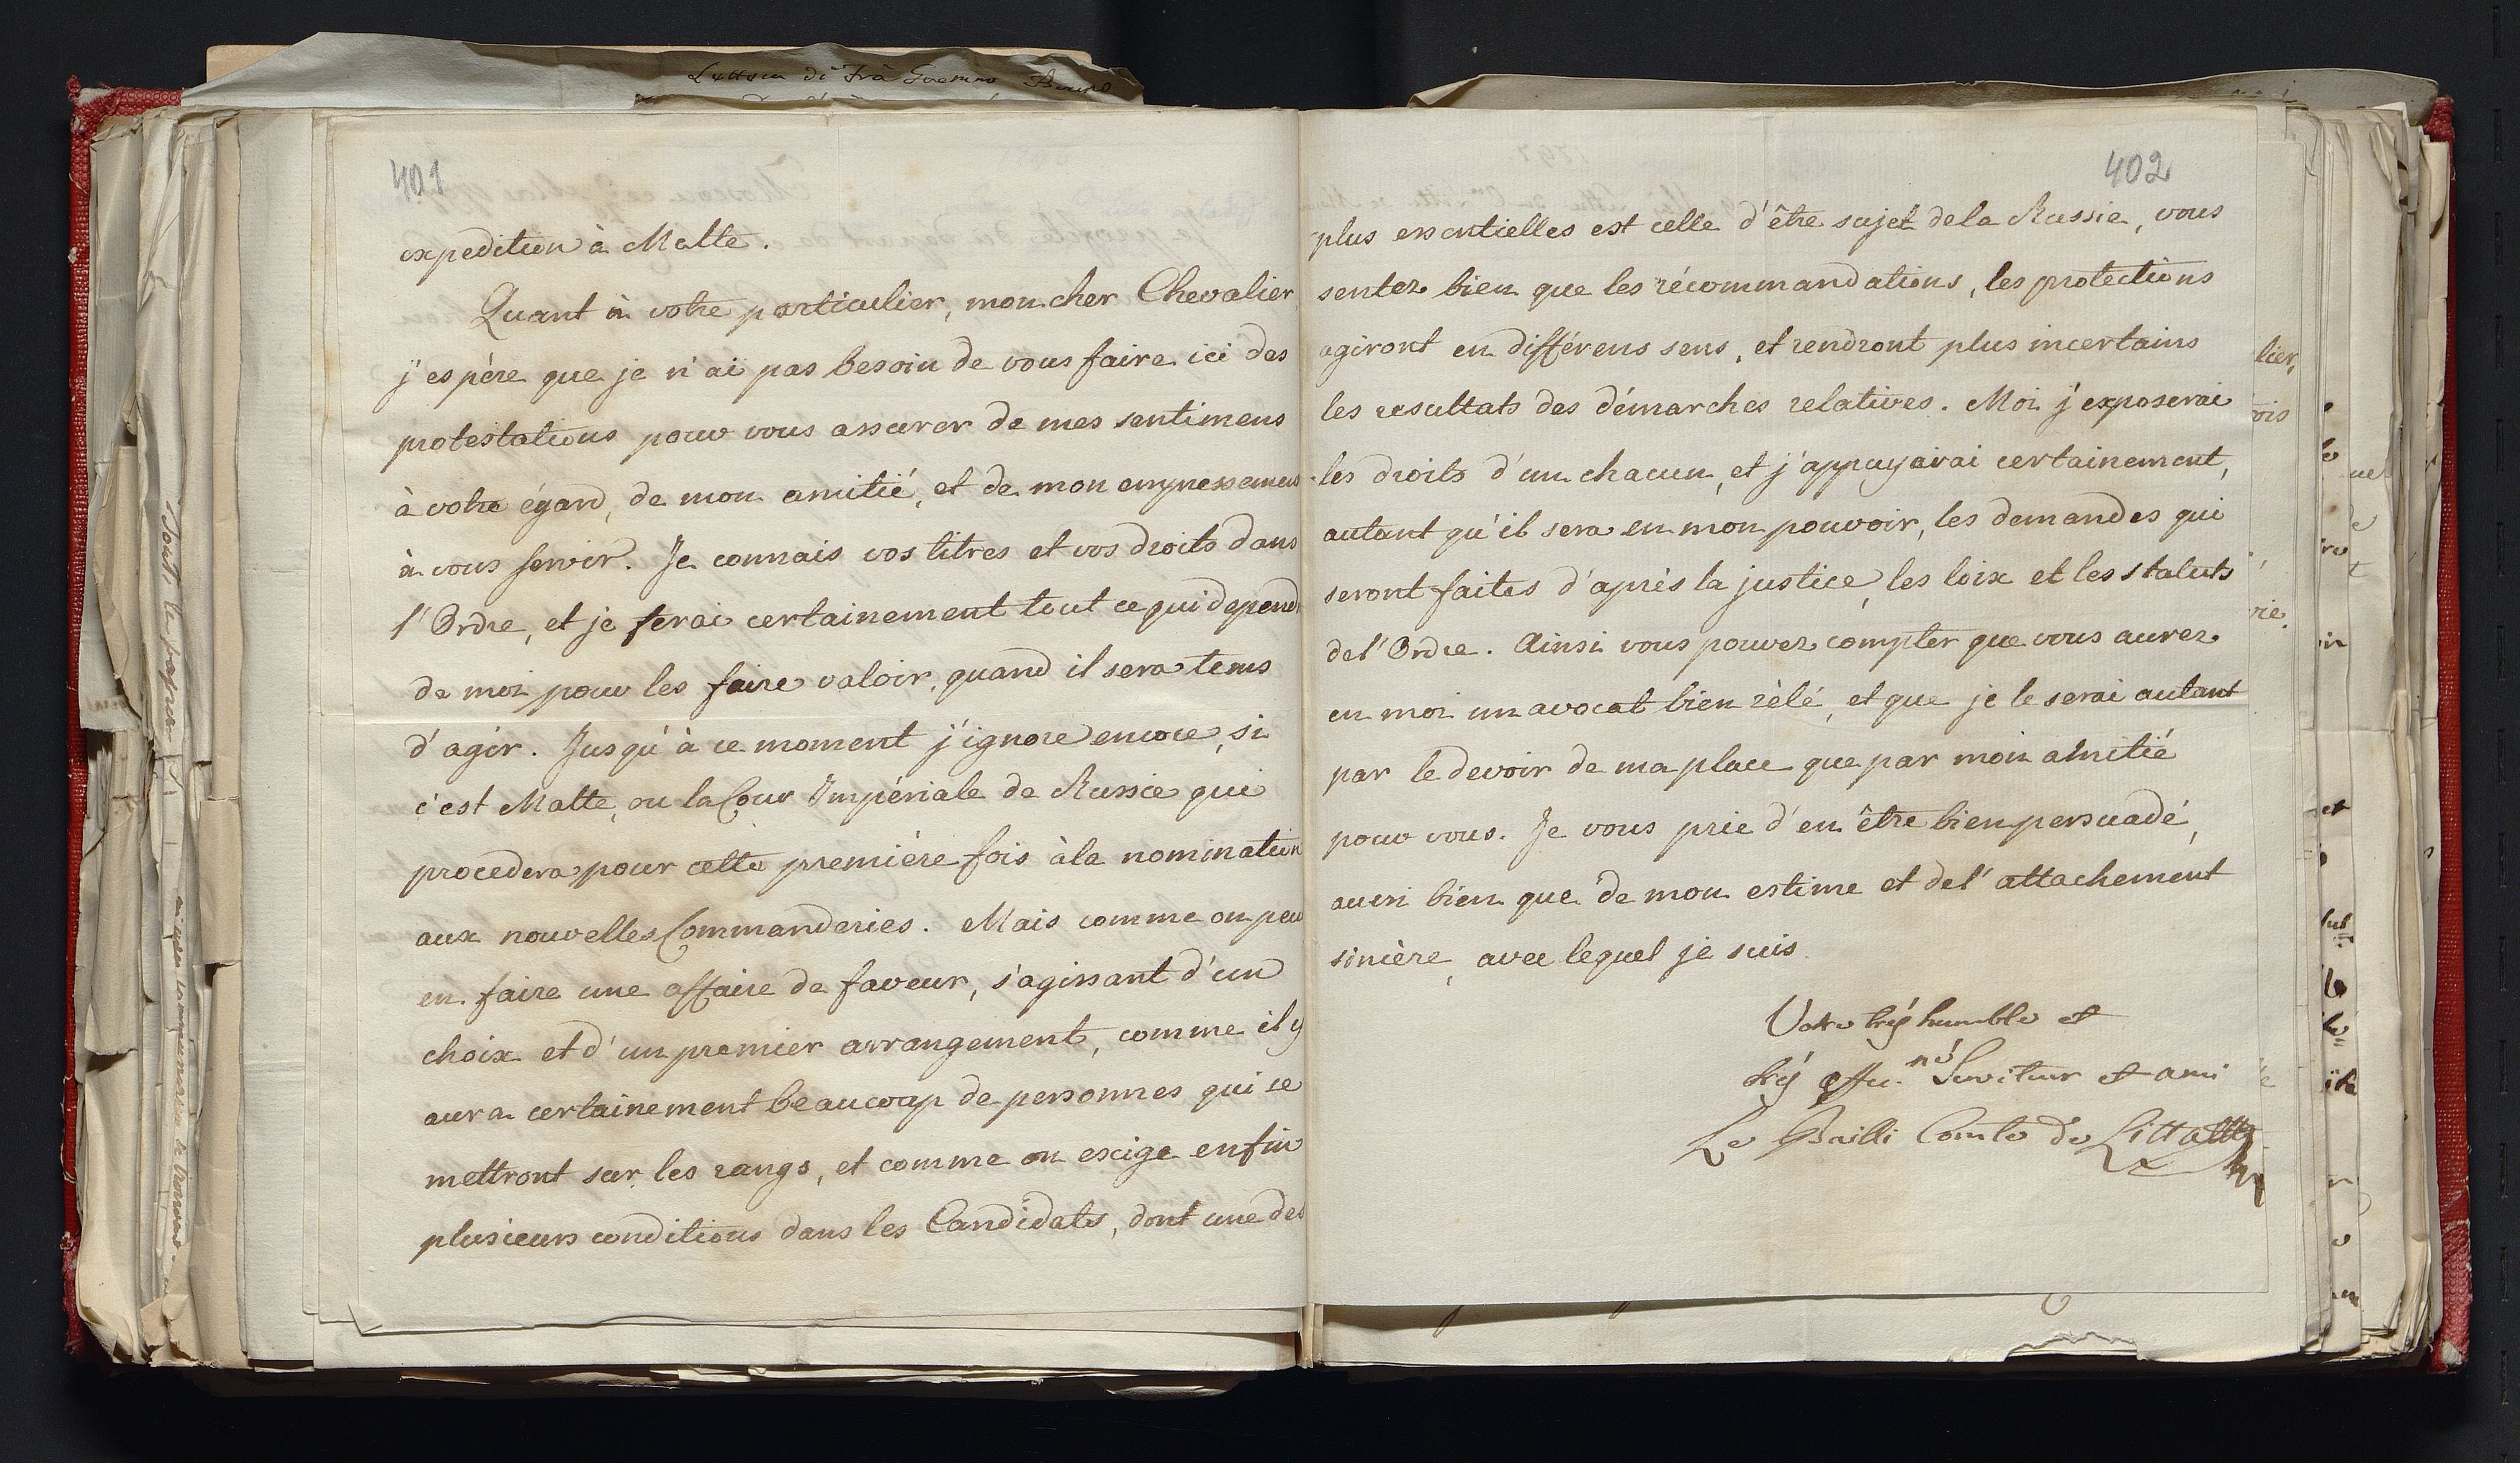 Lettera di Frà Gaetano Bruno
401
expedition à Malte.
Quant à votre particulier, mon cher Chevalier
j'espère que je n'ai pas besoin de vous faire ici des
protestations pour vous assurer de mes sentimens
à votre égard, de mon amitié, et de mon empressement
à vous servir. Je connais vos titres et vos droits dans
l'Ordre, et je ferai certainement tout ce qui depend
de moi pour les faire valoir, quand il sera tems
d'agir. Jusqu'à ce moment j'ignore encore, si
c'est Malte, ou la Cour Impériale de Russie qui
procedera pour cette première fois à la nomination
aux nouvelles Commanderies. Mais comme on peu
en faire une affaire de faveur, s'agissant d'un
choix et d'un premier arrangement, comme il y
aura certainement beaucoup de personnes qui se
mettront sur les rangs, et comme on exige enfin
plusieurs conditions dans les Candidats, dont une des
402
plus essentielles est celle d'être sujet de la Russie, vous
sentez bien que les récommandations, les protections
agiront en différens sens, et rendront plus incertains
les resultats des démarches relatives. Moi j'exposerai
les droits d'un chacun, et j'appuyairai certainement,
autant qu'il sera en mon pouvoir, les demandes qui
seront faites d'après la justice, les loix et les statuts
de l'Ordre. Ainsi vous pouvez compter que vous aurez
en moi un avocat bien zèlé, et que je le serai autant
par le devoir de ma place que par mon amitié
pour vous. Je vous prie d'en être bien persuadé,
aussi bien que de mon estime et de l'attachement
sincère, avec lequel je suis
Votre très humble et
très affec.né Serviteur et ami
Le Bailli Comte de Litta